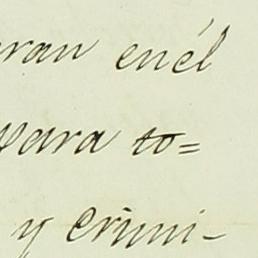 ran en él
para to=
y crimi-